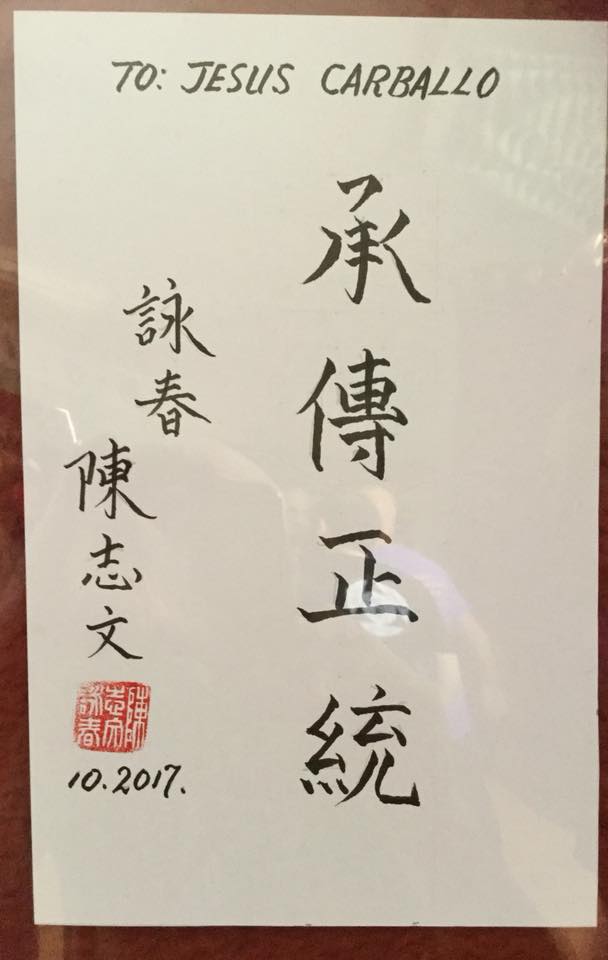 TO: JESUS CARBALLO
承傳正統
詠春
陳志文
陳志文詠春
10.2017.